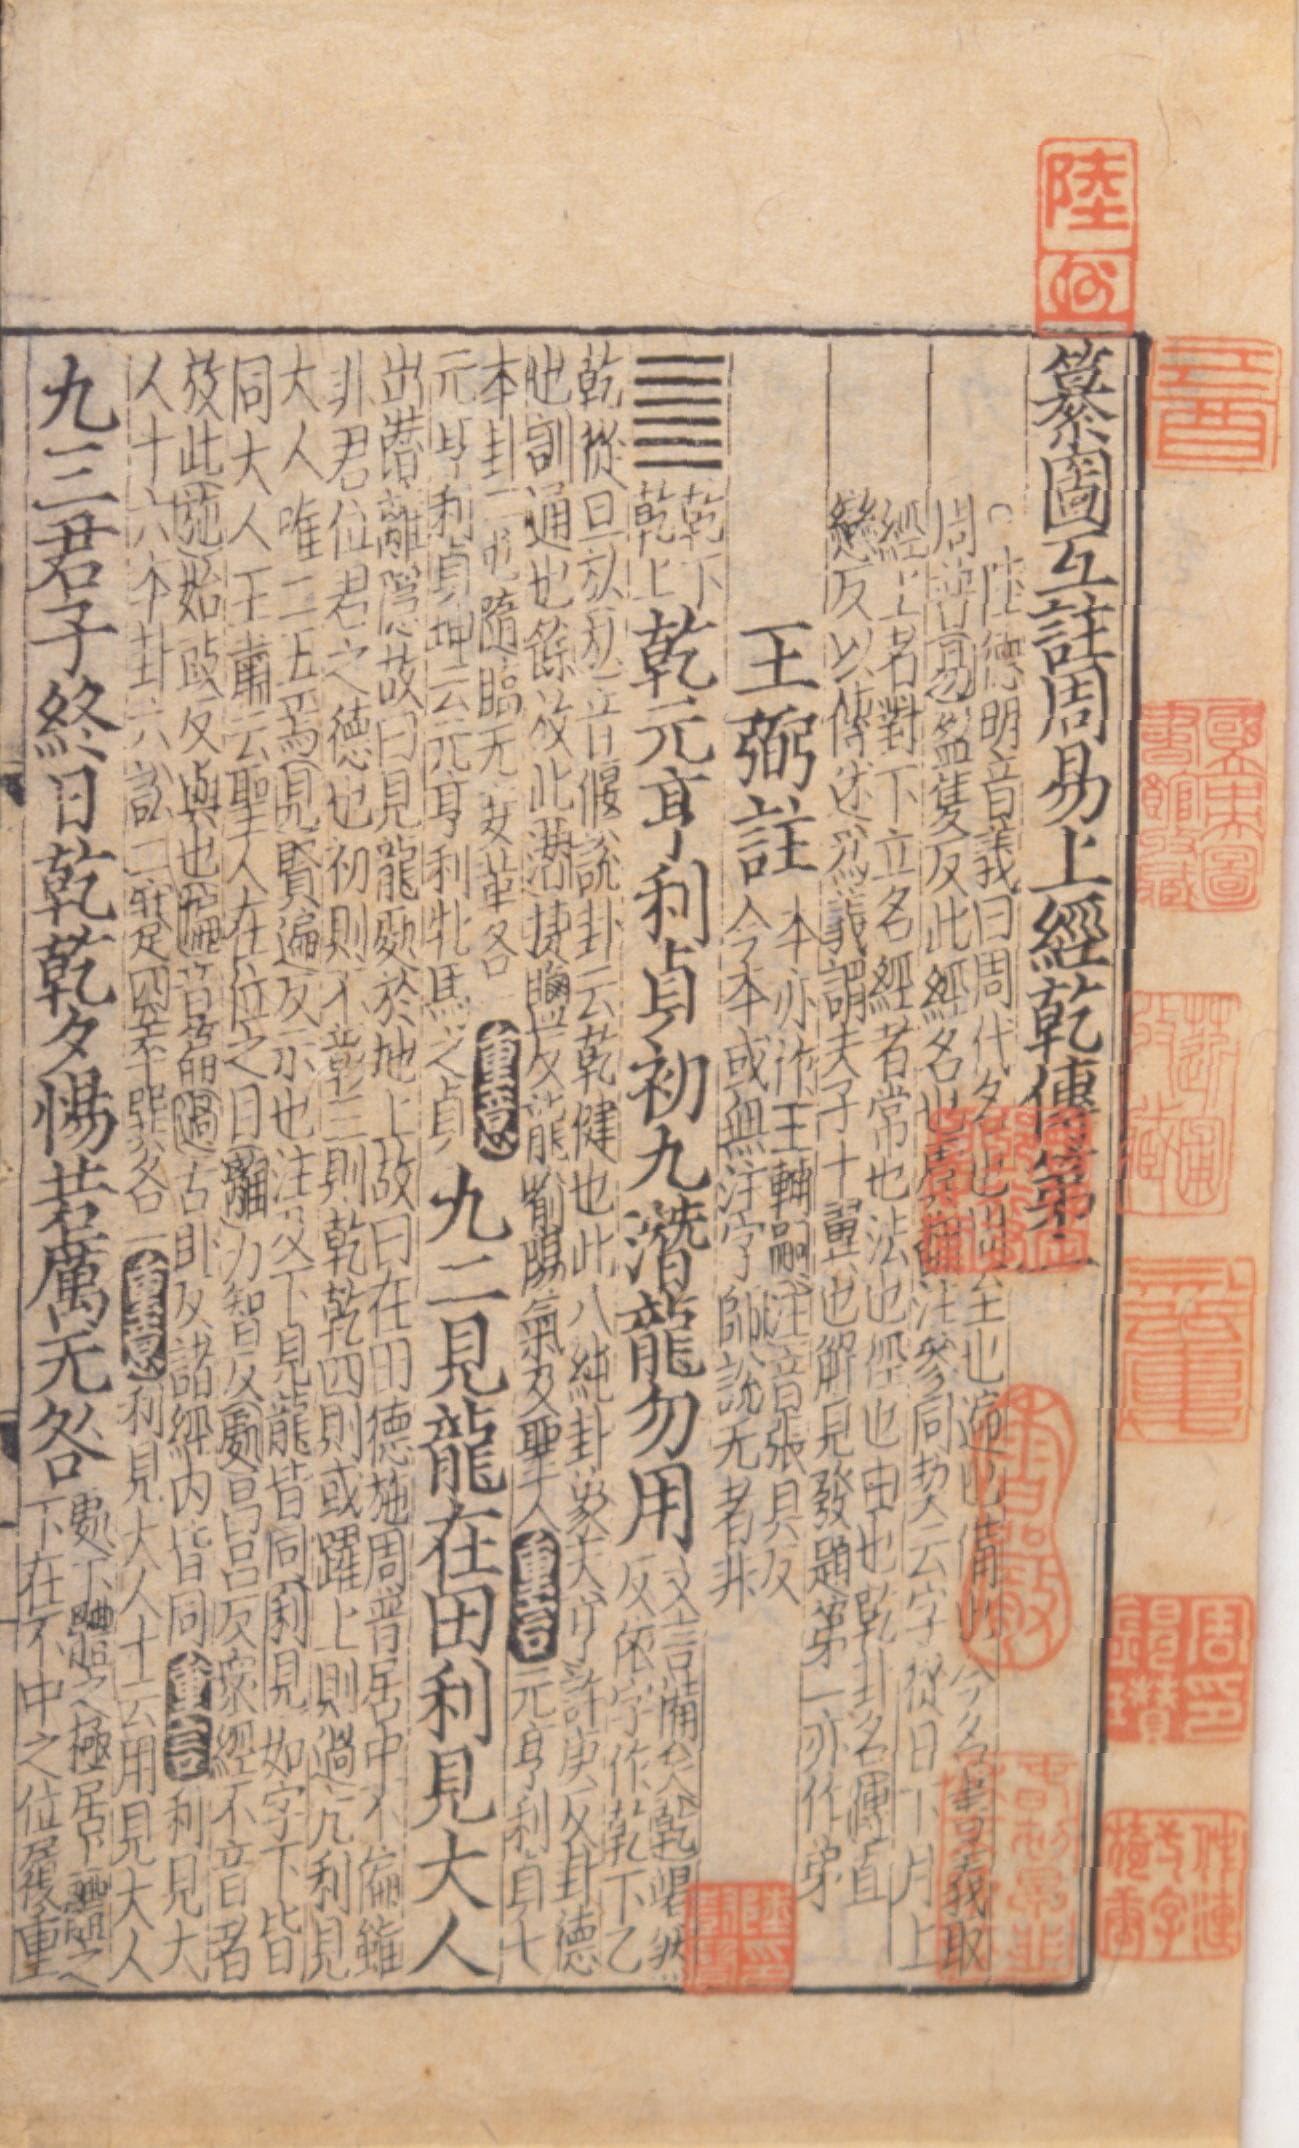 篡圖互註周易上經乾傳第一
陸德明音義曰周代名也周至也遍也備也今名書義取
周普易盈隻反此經名也虞翻注參同契云字從日下月上
經上者對下立名經者常也法也徑也由也乾卦名傳直
戀反以傳述爲義謂夫子十翼也解見發題第一亦作弟
王弼註
本亦作王輔嗣注音張具反
今本或無注字師說无者非
乾下
乾上
乾元亨利貞初九潛龍勿用
文言備矣乾竭然
反依字作乾下乙
乾從旦㫃㫃音偃說卦云乾健也此八純卦象天亨許庚反卦德
也訓通也餘放此潛捷鹽反龍喻陽氣及聖人重言元亨利貞七
本卦二屯隨臨无妄革各一重意
元亨利貞坤云元亨利牝馬之貞
九二見龍在田利見大人
出潛離隱故曰見龍處於地上故曰在田德施周普居中不偏雖
非君位君之德也初則不彰三則乾乾四則或躍上則過亢利見
大人唯二五焉見賢遍反示也注及下見龍皆同利見如字下皆
同大人王肅云聖人在位之目離力智反處昌呂反眾經不音者
放此施始豉反與也徧音遍過古卧反諸經内皆同重言利見大
人十六本卦六訟二蹇四萃巽各一重意利見大人十云用見大人
九三君子終日乾乾夕惕若厲无咎
處下體之極居上體之
下在不中之位履重